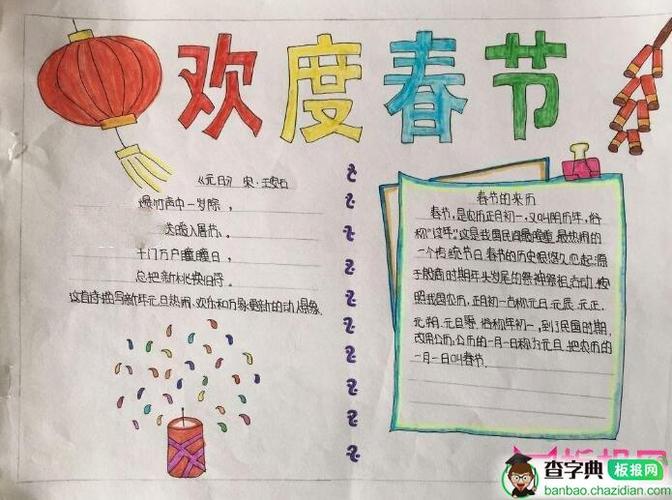 欢度春节
《元日》 宋·王安石
爆竹声中一岁除，
送暖入屠苏。
千门万户曈曈日，
总把新桃换旧符。
这首诗描写新年元旦热闹、欢乐和万象更新的动人景象.
春节的来历
春节，是农历正月初一，又叫阴历年，俗
称“过年”。这是我国民间最隆重、最热闹的
一个传统节日。春节的历史很悠久，它起源
于殷商时期年头岁尾的祭神祭祖活动，按
照我国农历，正月初一古称元日、元辰、元正、
元朔、元旦等，俗称年初一，到了民国时期，
改用公历，公历的一月一日称为元旦，把农历的
一月一日叫春节.
板报网
查字典 板报网
banbao.chazidian.com